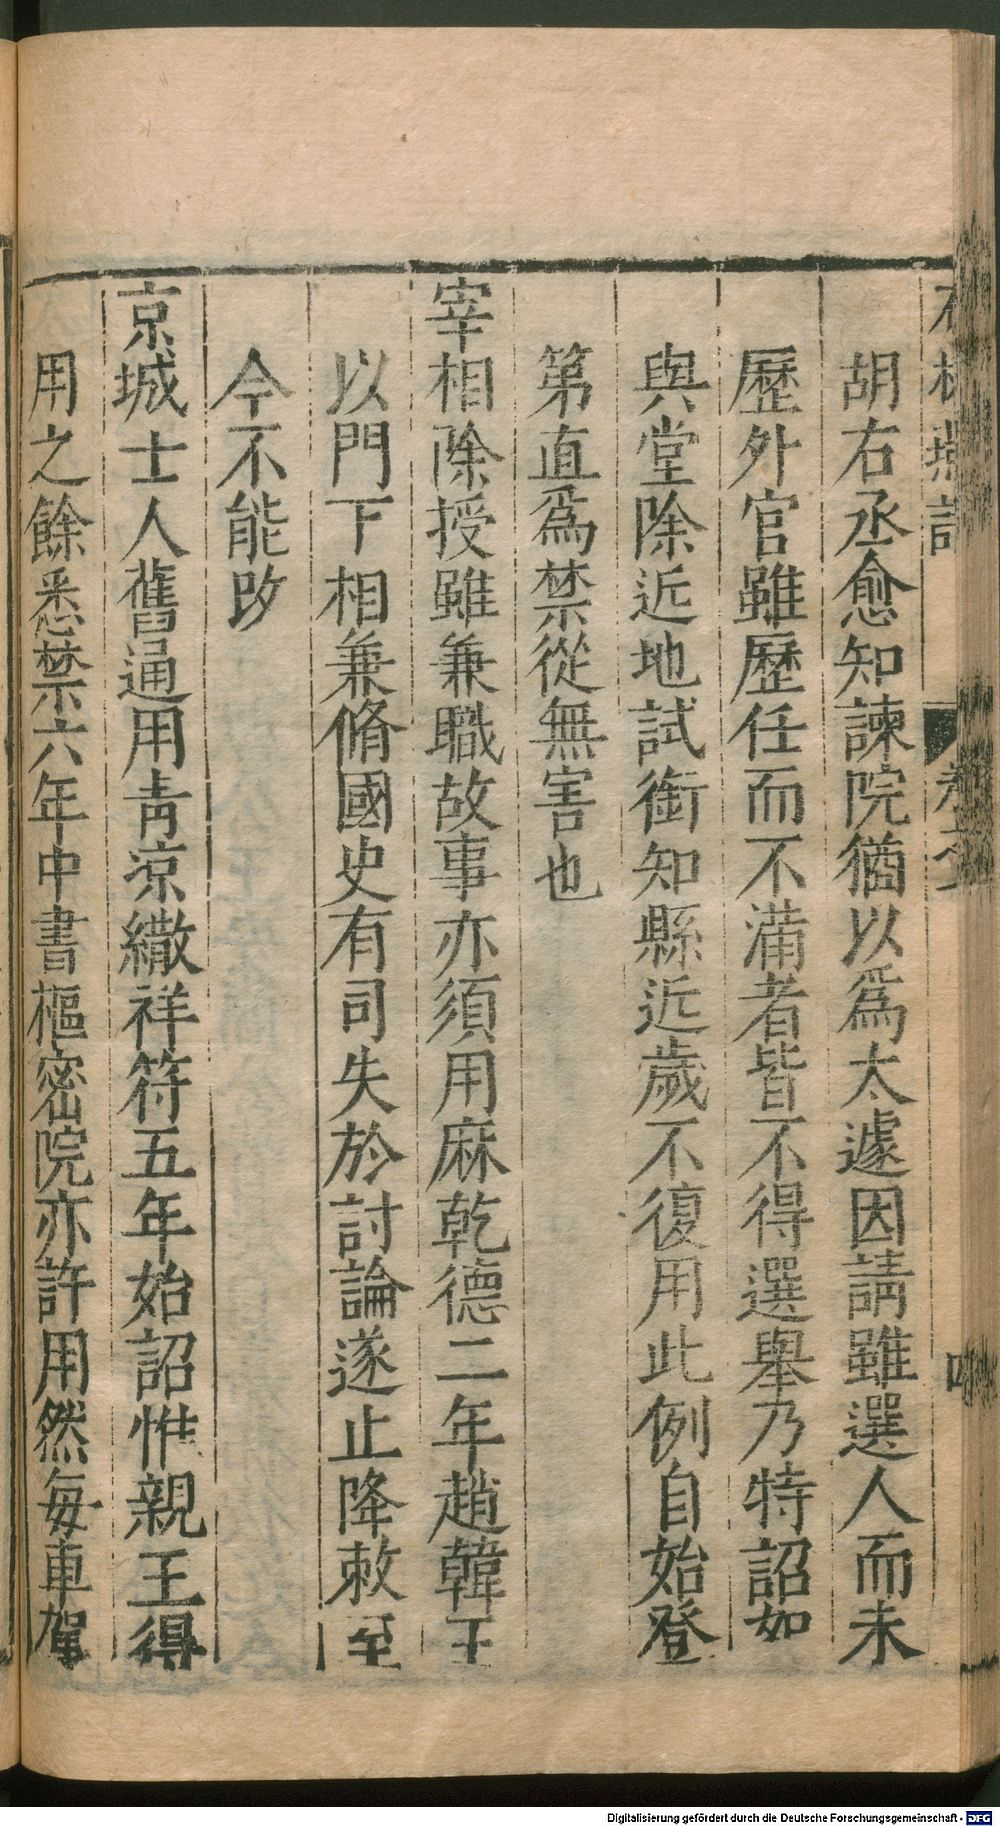 石林燕語
卷之
四
胡右丞愈知諫院猶以爲太遽因請雖選人而未
歷外官雖歷任而不滿者皆不得選舉乃特詔如
與堂除近地試銜知縣近歲不復用此例自始登
第直爲禁從無害也
宰相除授雖兼職故事亦須用麻乾德二年趙韓王
以門下相兼脩國史有司失於討論遂止降敕至
今不能改
京城士人舊通用靑凉繖祥符五年始詔惟親王得
用之餘悉禁六年中書樞密院亦許用然每車駕
Digitalisierung gefördert durch die Deutsche Forschungsgemeinschaft - DFG